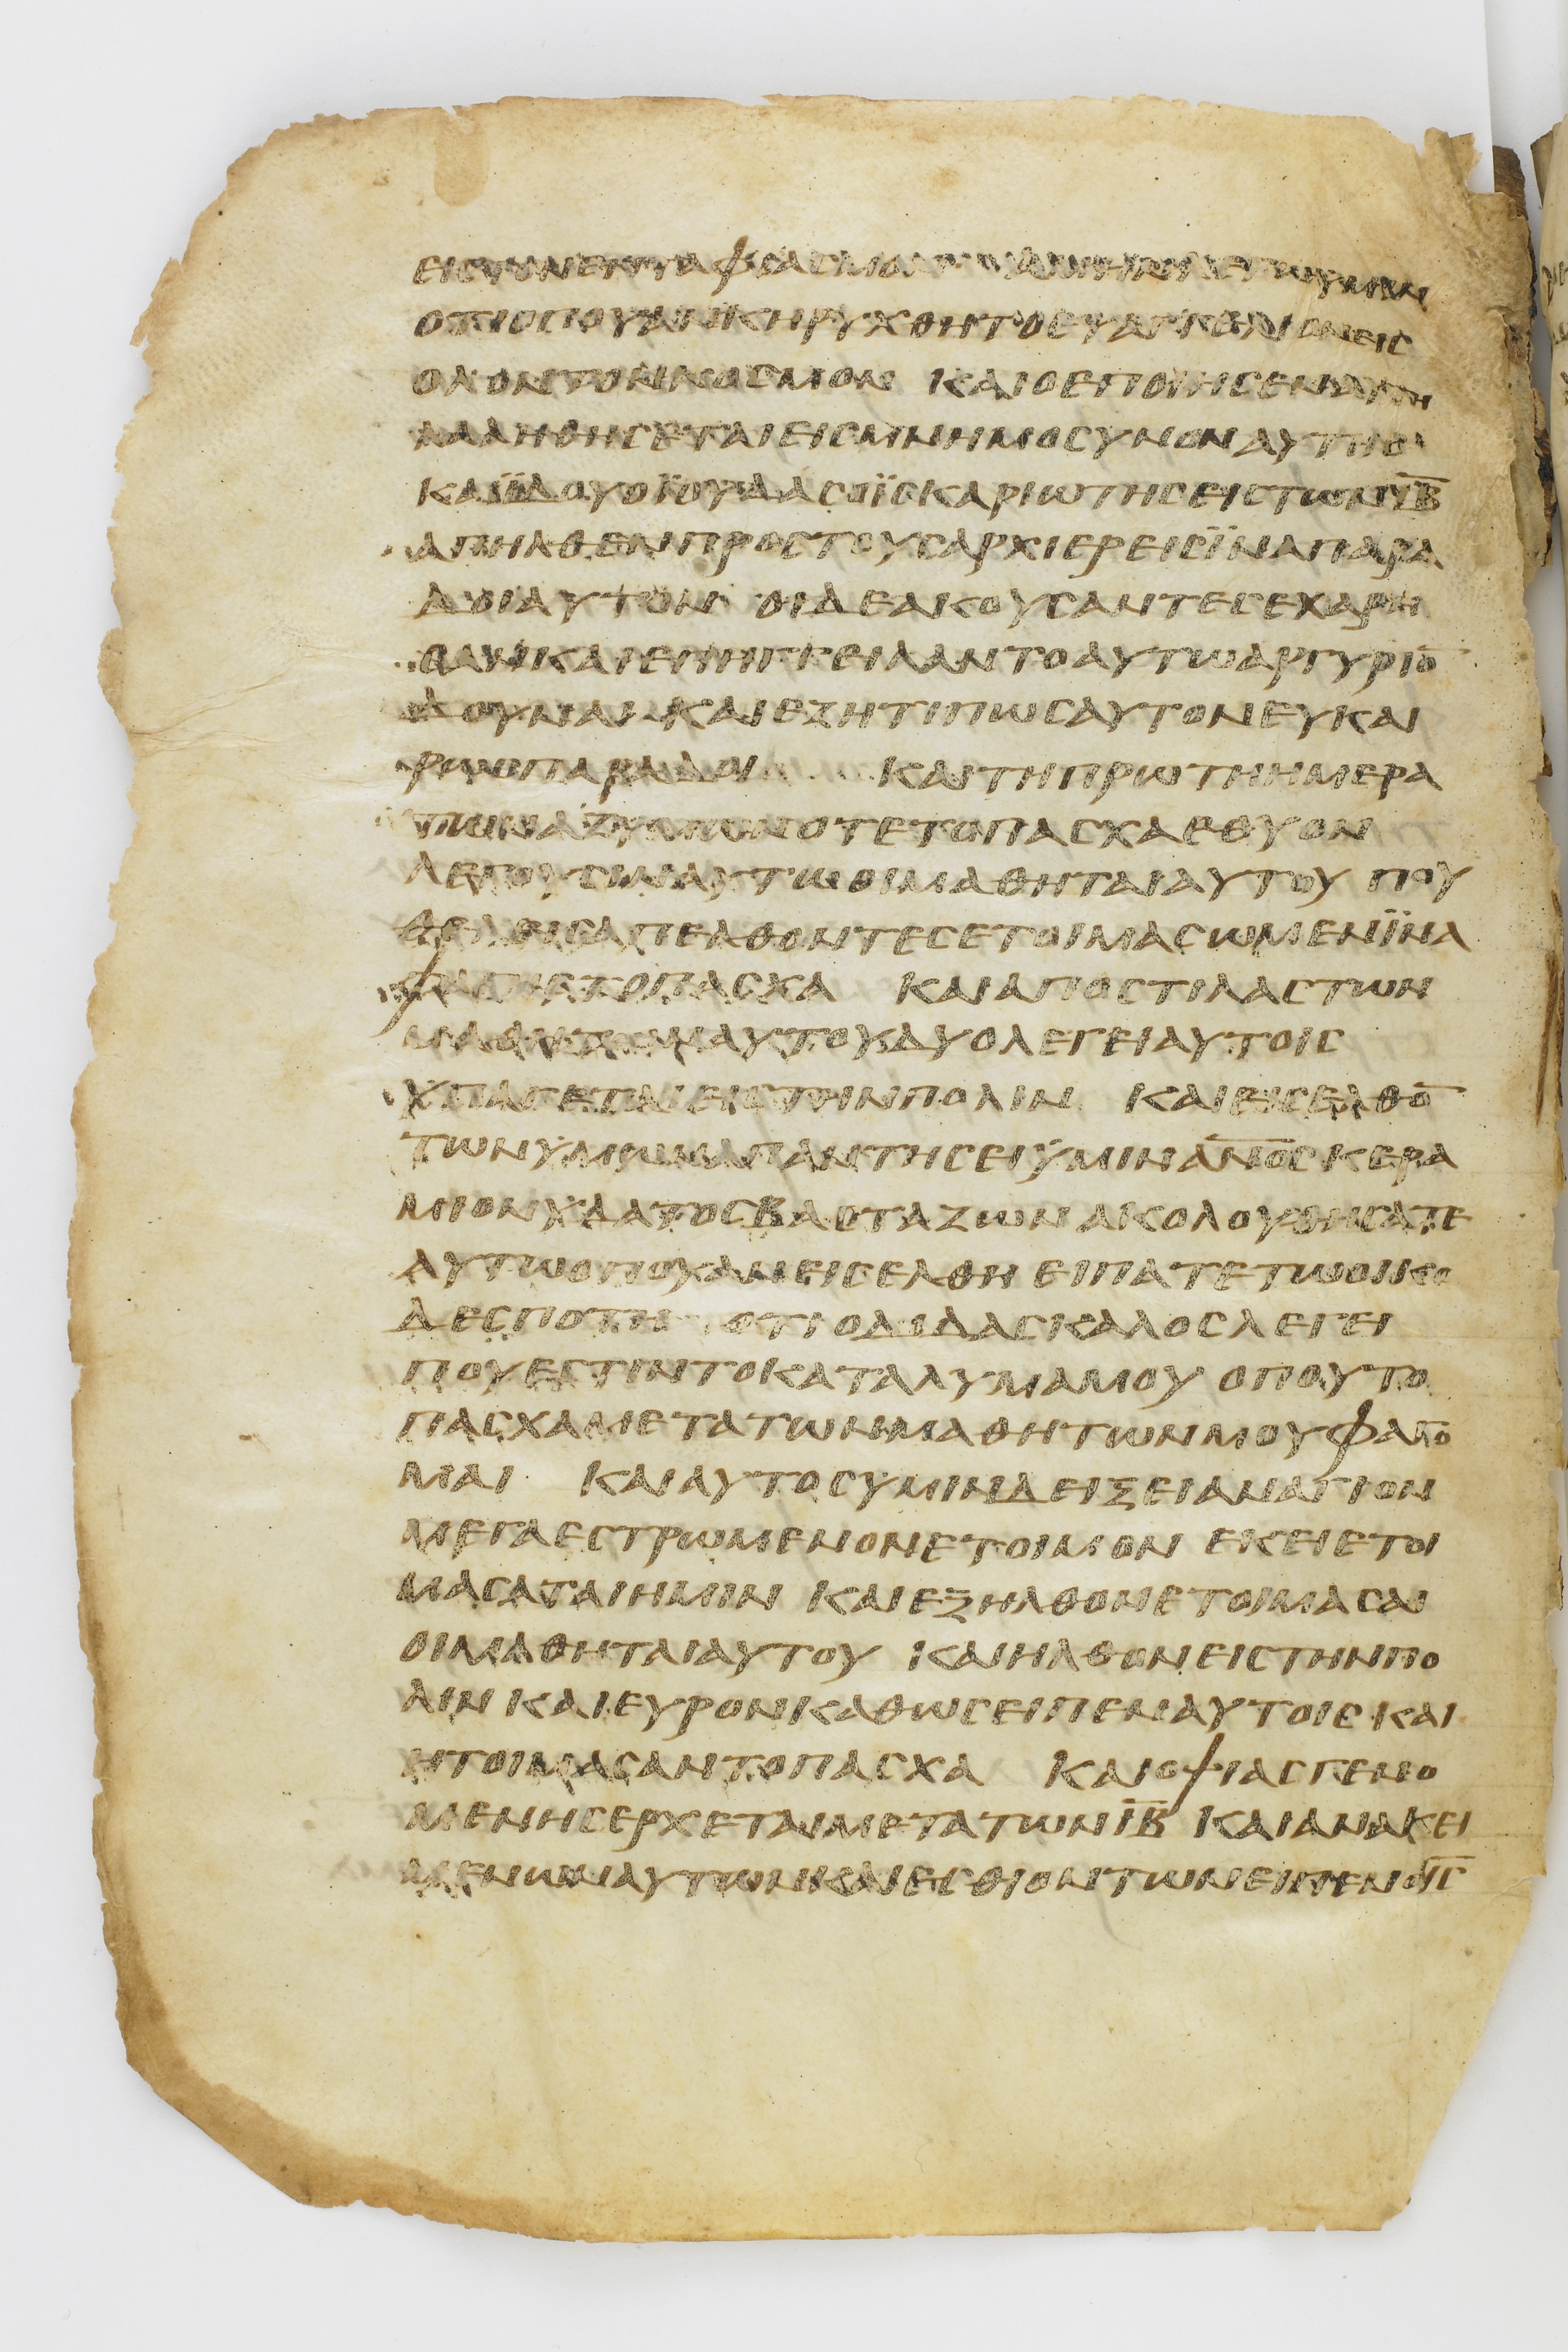 ΕΙϹΤΟΝΕΝΤΑΦΙΑϹΜΟΝ ΑΜΗΝΔΕΛΕΓΩΥΜΙΝ
ΟΤΙΟΠΟΥΕΑΝΚΗΡΥΧΘΗΤΟΕΥΑΓΓΕΛΙΟΝΕΙϹ
ΟΛΟΝΤΟΝΚΟϹΜΟΝ ΚΑΙΟΕΠΟΙΗϹΕΝΑΥΤΗ
ΛΑΛΗΘΗϹΕΤΑΙΕΙϹΜΝΗΜΟϹΥΝΟΝΑΥΤΗϹ
ΚΑΙΪΔΟΥΟΪΟΥΔΑϹΟΪϹΚΑΡΙΩΤΗϹΕΙϹΤΩΝΙ̅Β̅
ΑΠΗΛΘΕΝΠΡΟϹΤΟΥϹΑΡΧΙΕΡΕΙϹΪΝΑΠΑΡΑ
ΔΟΙΑΥΤΟΝ ΟΙΔΕΑΚΟΥϹΑΝΤΕϹΕΧΑΡΗ
ϹΑΝΚΑΙΕΠΗΓΓΕΙΛΑΝΤΟΑΥΤΩΑΡΓΥΡΙΟ̅
ΔΟΥΝΑΙ ΚΑΙΕΖΗΤΙΠΩϹΑΥΤΟΝΕΥΚΑΙ
ΡΩϹΠΑΡΑΔΟΙ ΚΑΙΤΗΠΡΩΤΗΗΜΕΡΑ
ΤΩΝΑΖΥΜΩΝΟΤΕΤΟΠΑϹΧΑΕΘΥΟΝ
ΛΕΓΟΥϹΙΝΑΥΤΩΟΙΜΑΘΗΤΑΙΑΥΤΟΥ ΠΟΥ
ΘΕΛΕΙϹΑΠΕΛΘΟΝΤΕϹΕΤΟΙΜΑϹΩΜΕΝΪΝΑ
ΦΑΓΗϹΤΟΠΑϹΧΑ ΚΑΙΑΠΟϹΤΙΛΑϹΤΩΝ
ΜΑΘΗΤΩΝΑΥΤΟΥΔΥΟΛΕΓΕΙΑΥΤΟΙϹ
ΥΠΑΓΕΤΕΕΙϹΤΗΝΠΟΛΙΝ ΚΑΙΕΙϹΕΛΘΟ̅
ΤΩΝΥΜΩΝΑΠΑΝΤΗϹΕΙΫΜΙΝΑ̅Ν̅Ο̅Ϲ̅ΚΕΡΑ
ΜΙΟΝΥΔΑΤΟϹΒΑϹΤΑΖΩΝΑΚΟΛΟΥΘΗϹΑΤΕ
ΑΥΤΩΟΠΟΥΑΝΕΙϹΕΛΘΗ ΕΙΠΑΤΕΤΩΟΙΚΟ
ΔΕϹΠΟΤΗ ΟΤΙΟΔΙΔΑϹΚΑΛΟϹΛΕΓΕΙ
ΠΟΥΕϹΤΙΝΤΟΚΑΤΑΛΥΜΑΜΟΥ ΟΠΟΥΤΟ
ΠΑϹΧΑΜΕΤΑΤΩΝΜΑΘΗΤΩΝΜΟΥΦΑΓΟ
ΜΑΙ ΚΑΙΑΥΤΟϹΥΜΙΝΔΕΙΞΕΙΑΝΑΓΙΟΝ
ΜΕΓΑΕϹΤΡΩΜΕΝΟΝΕΤΟΙΜΟΝ ΕΚΕΙΕΤΟΙ
ΜΑϹΑΤΑΙΗΜΙΝ ΚΑΙΕΞΗΛΘΟΝΕΤΟΙΜΑϹΑΙ
ΟΙΜΑΘΗΤΑΙΑΥΤΟΥ ΚΑΙΗΛΘΟΝΕΙϹΤΗΝΠΟ
ΛΙΝ ΚΑΙΕΥΡΟΝΚΑΘΩϹΕΙΠΕΝΑΥΤΟΙϹ ΚΑΙ
ΗΤΟΙΜΑϹΑΝΤΟΠΑϹΧΑ ΚΑΙΟΨΙΑϹΓΕΝΟ
ΜΕΝΗϹΕΡΧΕΤΑΙΜΕΤΑΤΩΝΙ̅Β̅ ΚΑΙΑΝΑΚΕΙ
ΜΕΝΩΝΑΥΤΩΝΚΑΙΕϹΘΙΟΝΤΩΝΕΙΠΕΝΟΙ̅Ϲ̅